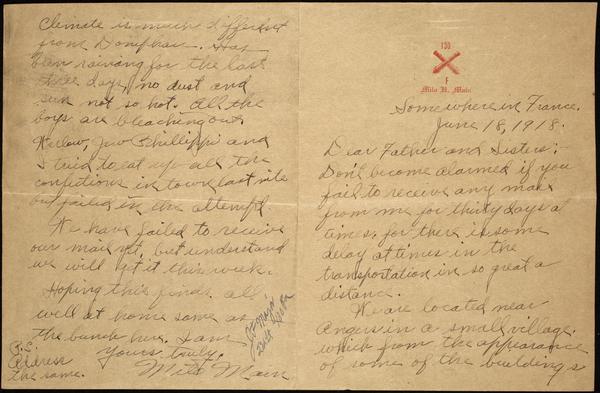 130
F
Milo H. Main
Somewhere in France.
June 18, 1918.
Dear Father and Sisters;-
Don't become alarmed if you
fail to receive any mail
from me for thirty days at
times, for there is some
delay at times in the
transportation in so great a
distance.
We are located near
Angers in a small village.
which from the appearance
of some of the buildings
Climate is much different
from Doniphan. Has
been raining for the last
three days, no dust and
sun not so hot. All the
boys are bleaching out.
Phillippi and
I tried to eat up all the
confections in town last nite
but failed in the attempt.
We have failed to receive
our mail yet, but understand
we will get it this week.
Hoping this finds all
well at home same as
the bunch here. I am
Yours truly,
Milo Main
P.S.
Address
the same.